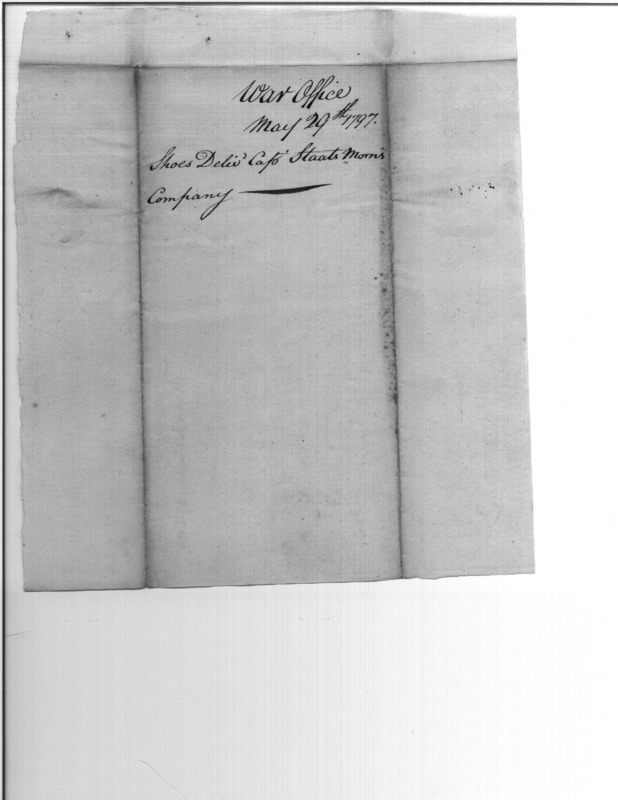 War Office
May 29th 1797.
Shoes Deliv'd Capt Staats Morris
Company